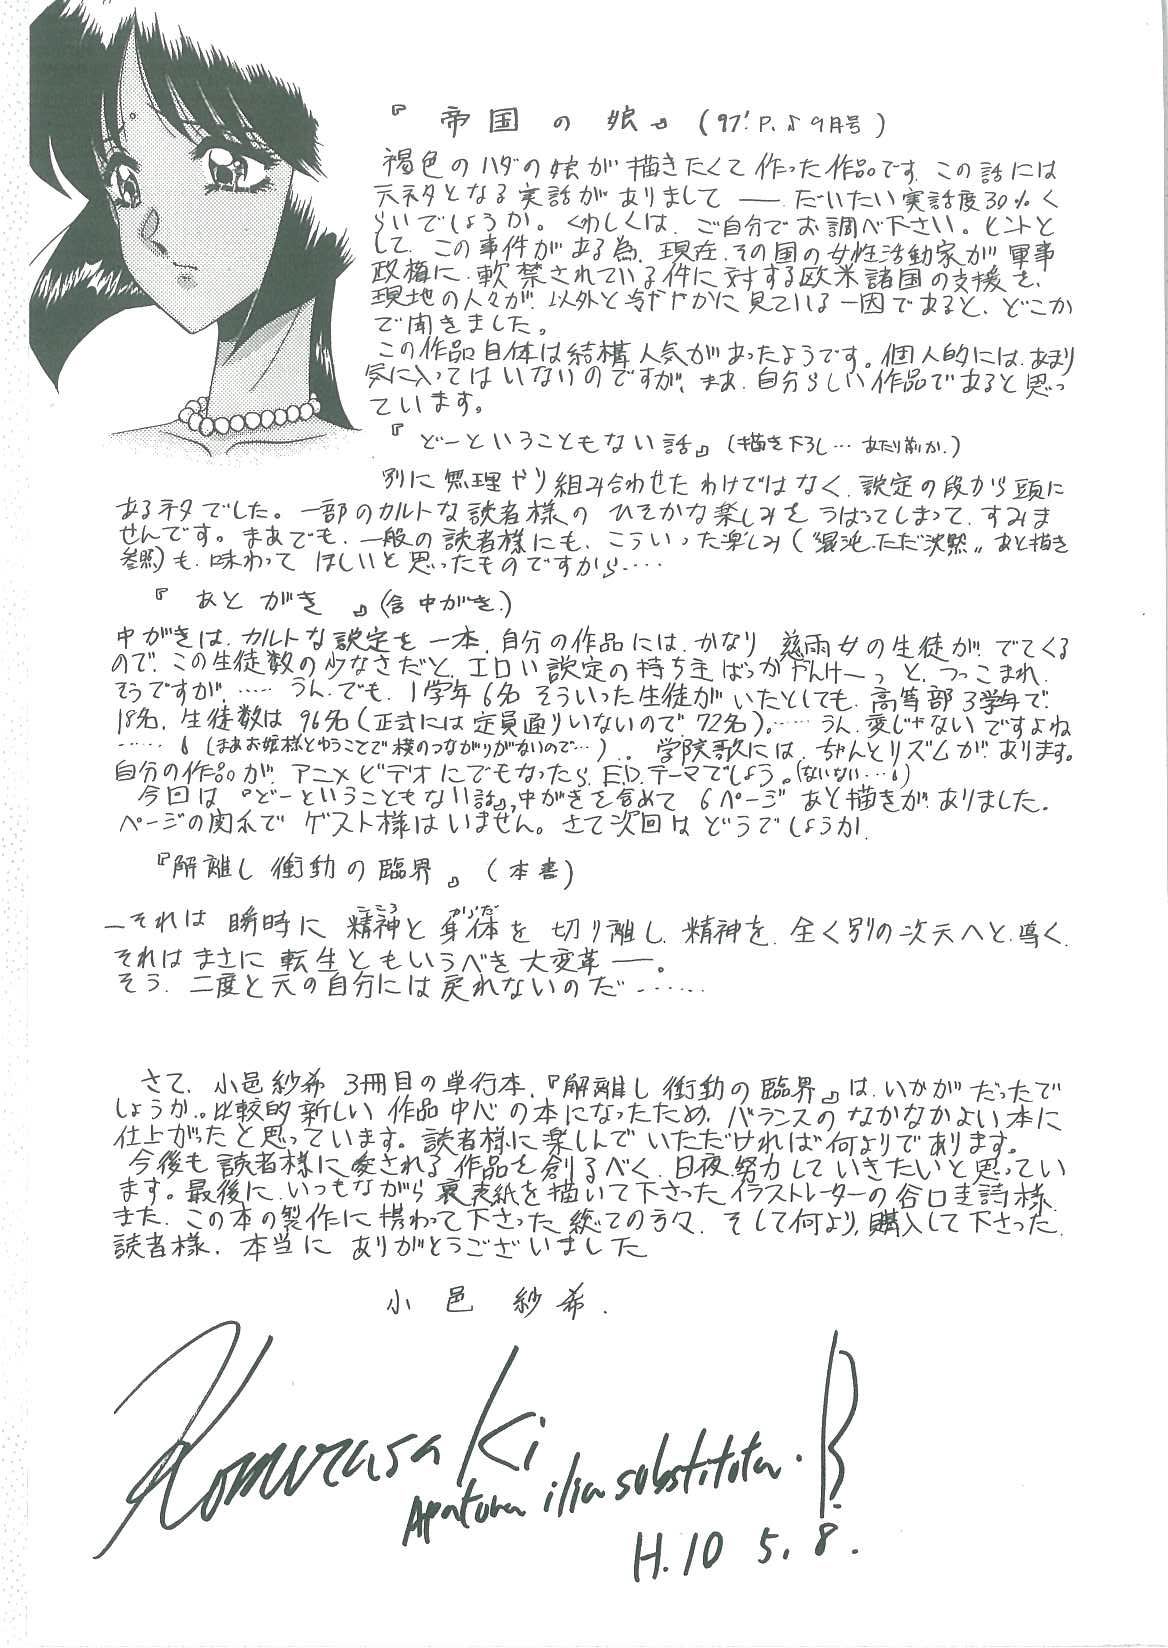 『帝国の娘』(97' P.♪9月号)
褐色のハダの娘が描きたくて作った作品です。この話には
元ネタとなる実話がありまして――だいたい実話度30%く
らいでしょうか。くわしくは、ご自分でお調べ下さい。ヒントと
して、この事件がある為、現在、その国の女性活動家が軍事
政権に、軟禁されている件に対する欧米諸国の支援を、
現地の人々が、以外と冷ややかに見ている一因であると、どこか
で聞きました。
この作品自体は結構人気があったようです。個人的には、あまり
気に入ってはいないのですが、まあ、自分らしい作品であると思っ
ています。
『どーということもない話』(描き下ろし…あたり前か.)
別に無理やり組み合わせたわけではなく、設定の段から頭に
あるネタでした。一部のカルトな読者様のひそかな楽しみをうばってしまって、すみま
せんです。まあでも、一般の読者様にも、こういった楽しみ(“混沌、ただ沈黙„あと描き
参照)も、味わってほしいと思ったものですから……
『あとがき』(含中がき.)
中がきは、カルトな設定を一本、自分の作品には、かなり慈雨女の生徒が、でてくる
ので、この生徒数の少なさだと、エロい設定の持ち主ばっかやんけーっと、つっこまれ、
そうですが、……うん、でも、1学年6名そういった生徒がいたとしても、高等部3学年で、
18名、生徒数は96名(正式には定員通りいないので、72名)。……うん、変じゃないですよね
……(まあお嬢様とゆうことで横のつながりがないので…)… 学院歌には、ちゃんとリズムがあります。
自分の作品が、アニメビデオにでもなったら、E.D.テーマでしょう。(ないない…)
今回は『どーということもない話』、中がきを含めて6ページあと描きがありました.
ページの関係でゲスト様はいません。さて次回はどうでしょうか.
『解離し衝動の臨界』(本書)
―それは瞬時に精神と身体を切り離し、精神を、全く別の次元へと、導く、
こころ からだ
それはまさに転生ともいうべき大変革――。
そう、二度と元の自分には戻れないのだ……
さて、小邑紗希3冊目の単行本、『解離し衝動の臨界』は、いかがだったで
しょうか。比較的新しい作品中心の本になったため、バランスのなかなかよい本に
仕上がったと思っています。読者様に楽しんでいただければ何よりであります。
今後も読者様に愛される作品を創るべく、日夜努力していきたいと思ってい
ます。最後に、いつもながら裏表紙を描いて下さったイラストレーターの谷口圭詩様、
また、この本の製作に携わって下さった総ての方々、そして何より、購入して下さった、
読者様、本当にありがとうございました
小邑紗希.
Komurasaki
Apatura ilia substituta. B.
H.10 5.8.